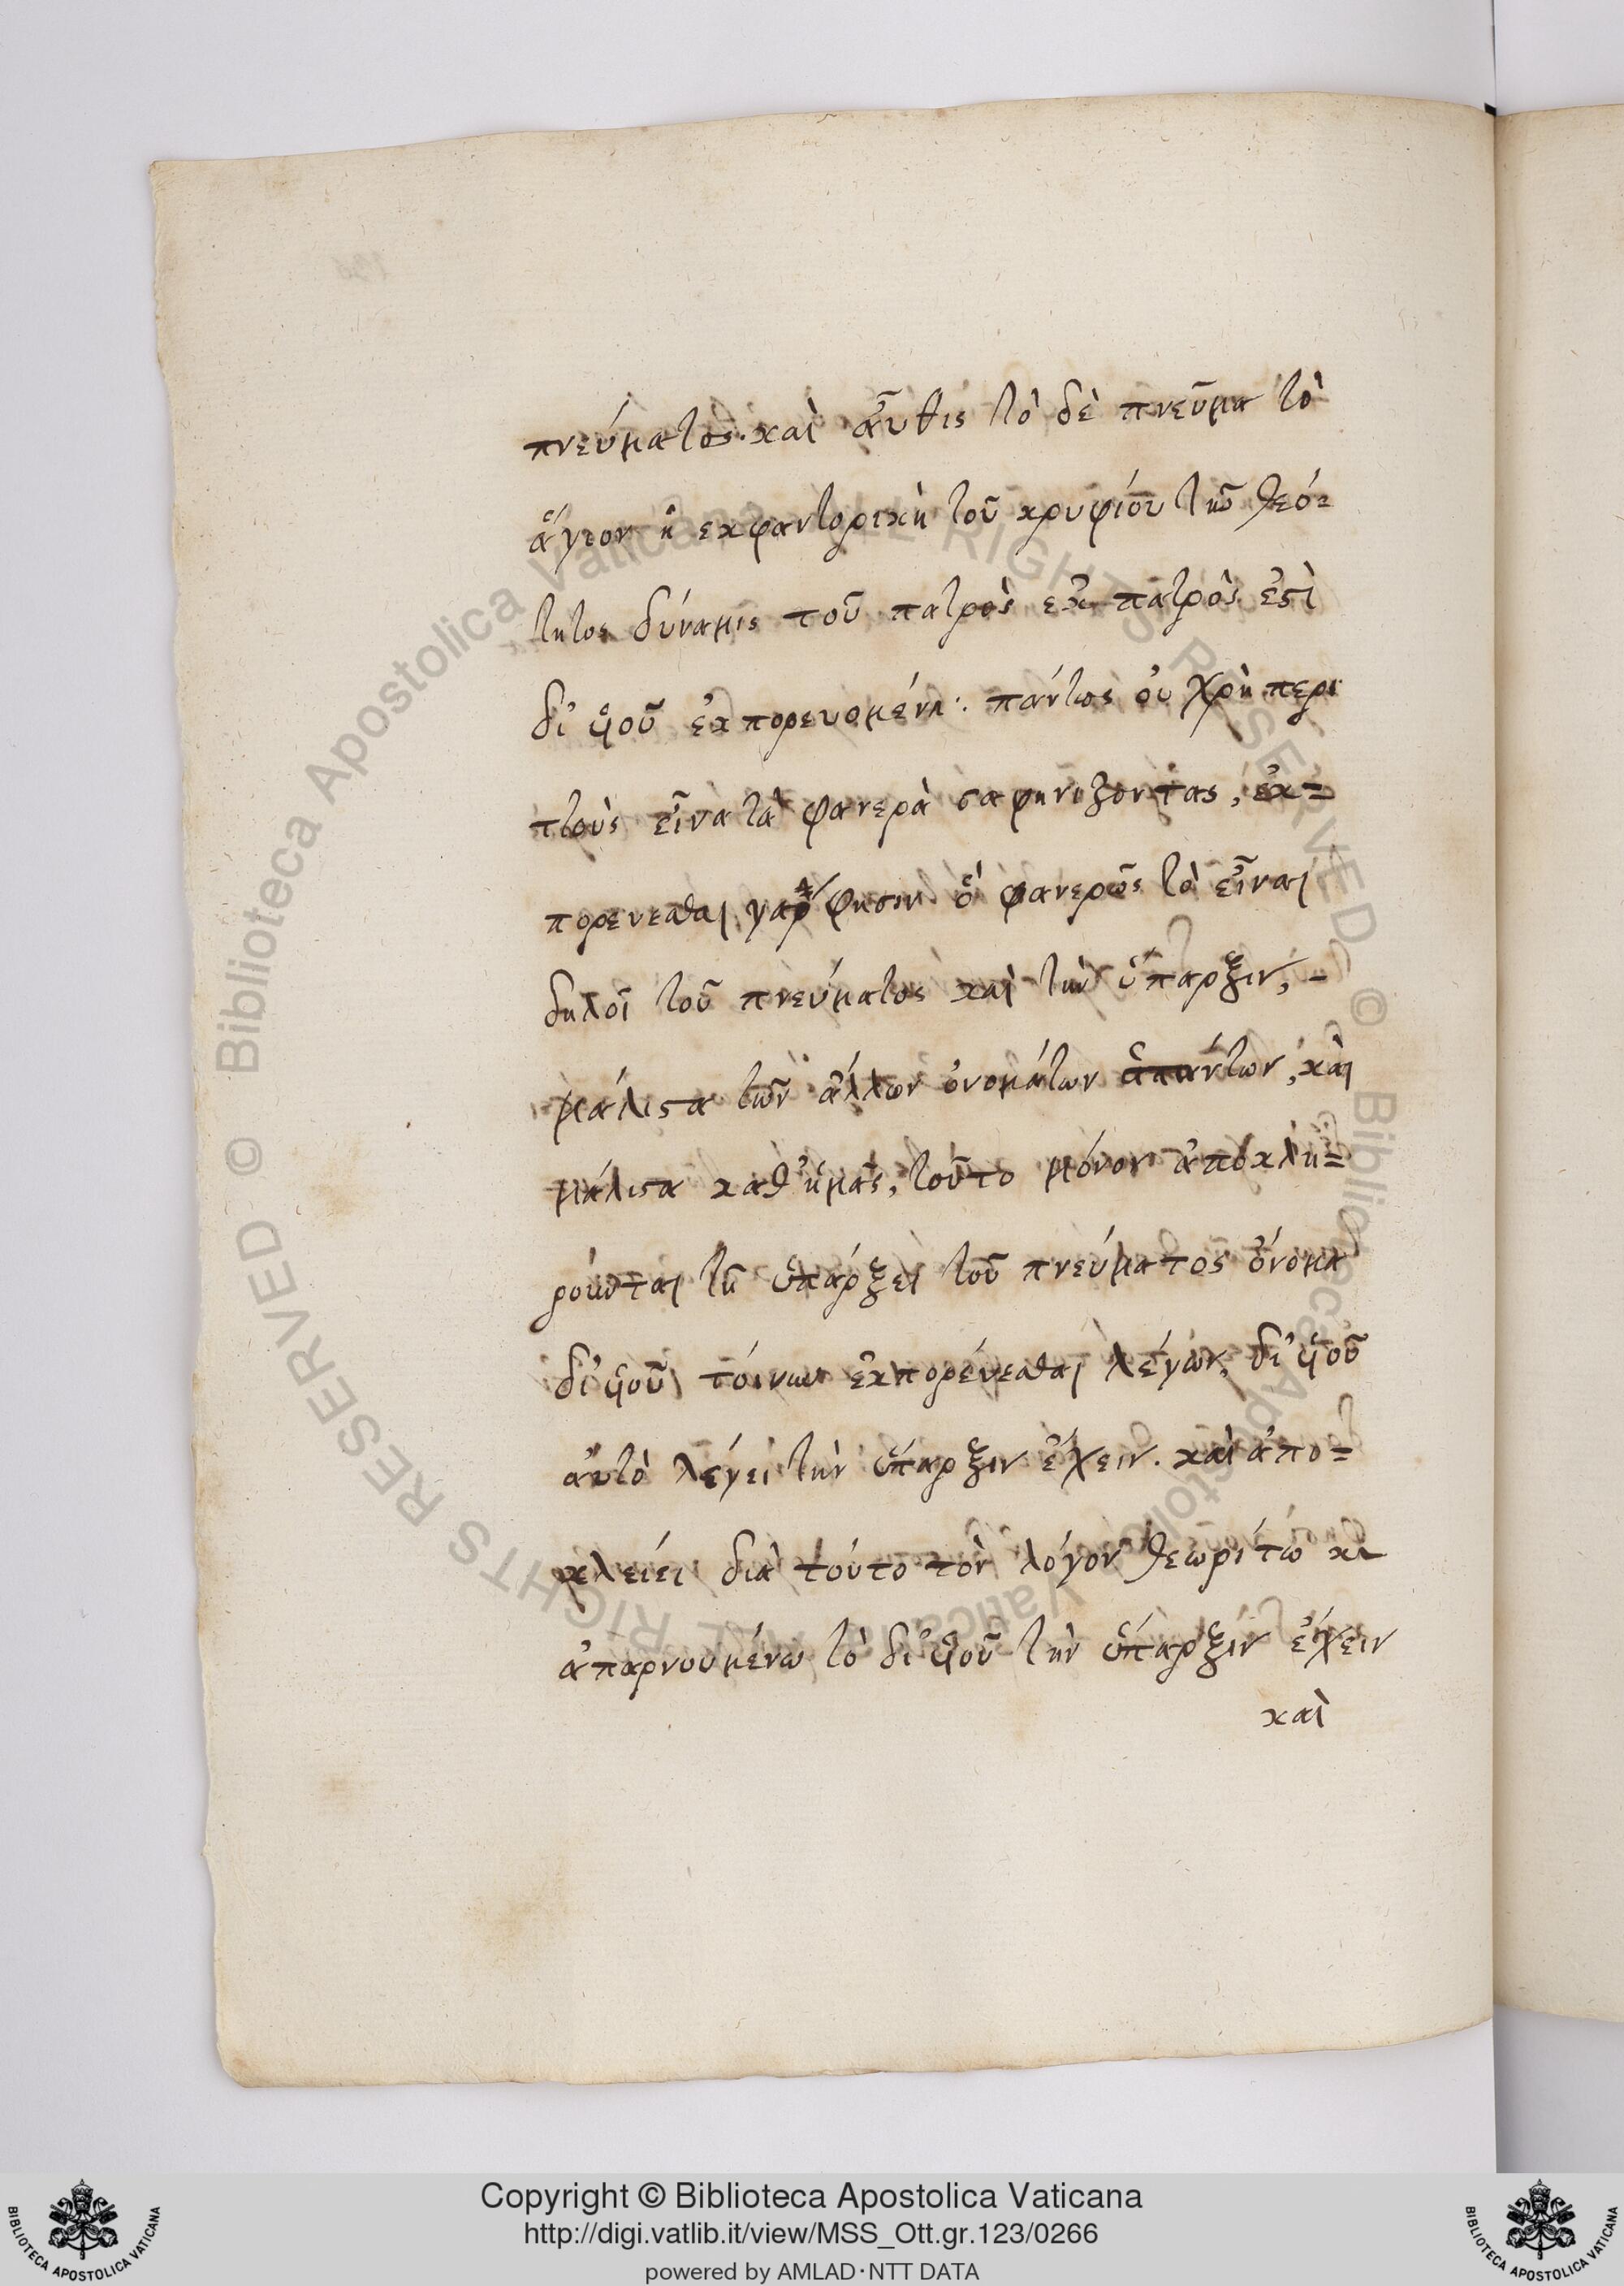 πνεύματος. καὶ αὖθις τὸ δὲ πνεῦμα τὸ
ἅγιον ἡ εκφαντορικὴ τοῦ κρυφίου τῆς θεό=
τητος δύναμις τοῦ πατρὸς ἐκ πατρὸς ἐστὶ
δι' υἱοῦ ἐκπορευομένη: πάντως οὐ χρὴ περι
τοὺς εἶνα τὰ φανερὰ σαφηνιζοντας, ἐκ=
πορευεσθαι γαρ φησιν ὃ φανερῶς τὸ εἶναι
δηλοῖ τοῦ πνεύματος καὶ τὴν ὕπαρξιν, -
μάλιστα τῶν ἄλλων ὀνομάτων ἁπάντων, καὶ
μάλιστα καθ' ἡμᾶς, τοῦτο μόνον ἀποκλη=
ροῦται τῇ ὑπάρξει τοῦ πνεύματος ὄνομα
δι' υἱοῦ τόινυν ἐκπορέυεσθαι λέγων, δι' υἱοῦ
ἀυτὸ λέγει τὴν ὕπαρξιν ἔχειν. καὶ ἀπο=
κλείει διὰ τούτο τὸν λόγον θεωρίτω κ
ἀπαρνουμένω τὸ δι' υἱοῦ τὴν ὕπαρξιν ἔχειν
καὶ
Copyright © Biblioteca Apostolica Vaticana
http://digi.vatlib.it/view/MSS_Ott.gr.123/0266
powered by AMLAD·NTT DATA
BIBLIOTECA APOSTOLICA VATICANA
BIBLIOTECA APOSTOLICA VATICANA
© Biblioteca Apostolica Vaticana ALL RIGHTS RESERVED © Biblioteca Apostolica Vaticana ALL RIGHTS RESERVED